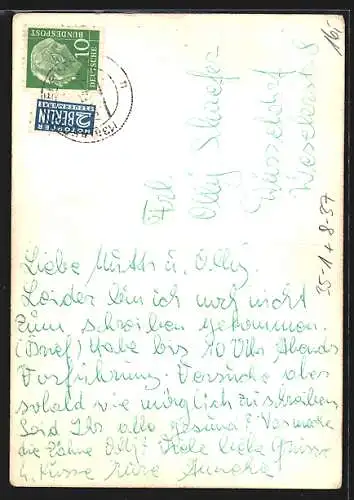 10
DEUTSCHE
BUNDESPOST
NOTOPFER
2 BERLIN
STEUERMARKE
16,-
Frl.
Olly Schaefer
Düsseldorf
35-1 + 8-57
Liebe Mutti u. Olly.
Leider bin ich noch nicht
zum schreiben gekommen.
(Brief) Habe bis 10 Uhr Abends
Vorführung. Versuche aber
sobald wie möglich zu schreiben
Seid Ihr alle gesund? Was machen
die Zähne Olly? Viele liebe Grüsse
u. Küsse Eure